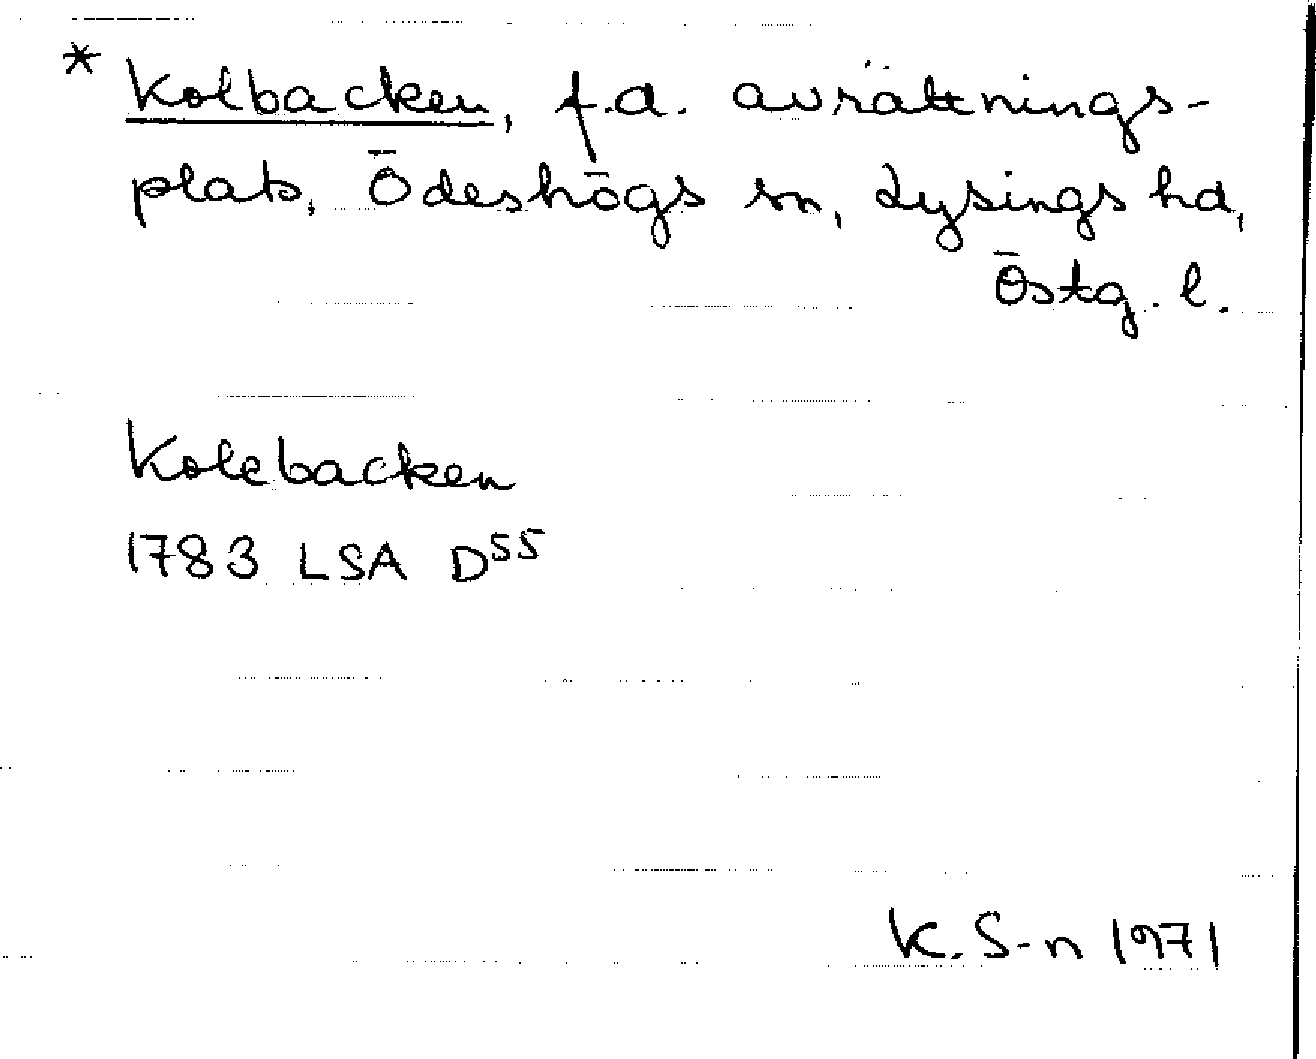 * Kolbacken, f.d. avrättnings-
plats, Ödeshögs sn, Lysings hd,
Östg. l.
Kolebacken
1783 LSA D55
K. S-n 1971